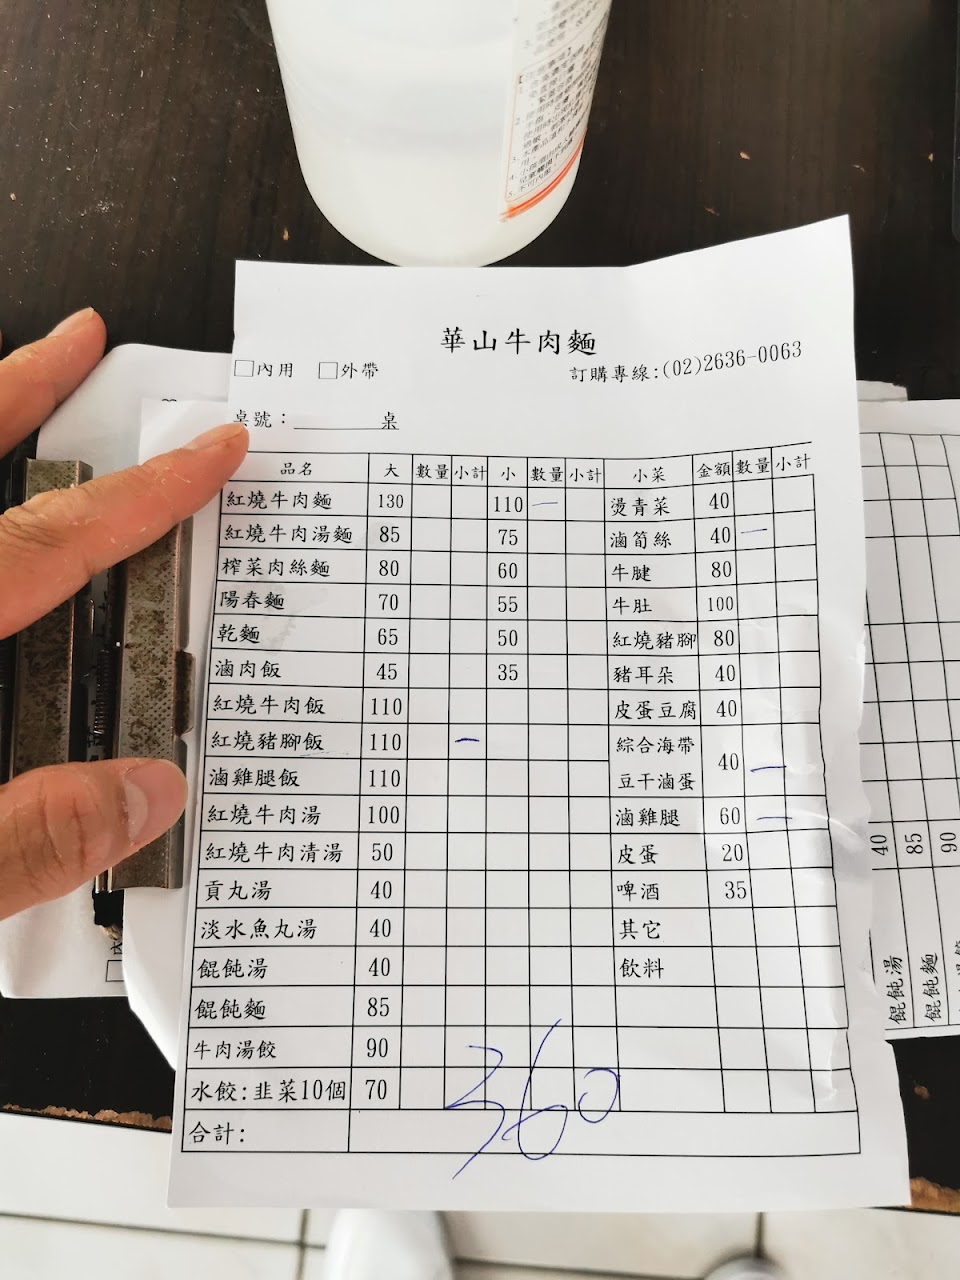 華山牛肉麵
□內用 □外帶 訂購專線:(02)2636-0063
桌號：________桌
品名 大 數量 小計 小 數量 小計 小菜 金額 數量 小計
紅燒牛肉麵 130 110 一 燙青菜 40
紅燒牛肉湯麵 85 75 滷筍絲 40 一
榨菜肉絲麵 80 60 牛腱 80
陽春麵 70 55 牛肚 100
乾麵 65 50 紅燒豬腳 80
滷肉飯 45 35 豬耳朵 40
紅燒牛肉飯 110 皮蛋豆腐 40
紅燒豬腳飯 110 一 綜合海帶
滷雞腿飯 110 豆干滷蛋 40 一
紅燒牛肉湯 100 滷雞腿 60 一
紅燒牛肉清湯 50 皮蛋 20
貢丸湯 40 啤酒 35
淡水魚丸湯 40 其它
餛飩湯 40 飲料
餛飩麵 85
牛肉湯餃 90
水餃:韭菜10個 70
合計: 360
餛飩湯 40
餛飩麵 85
90